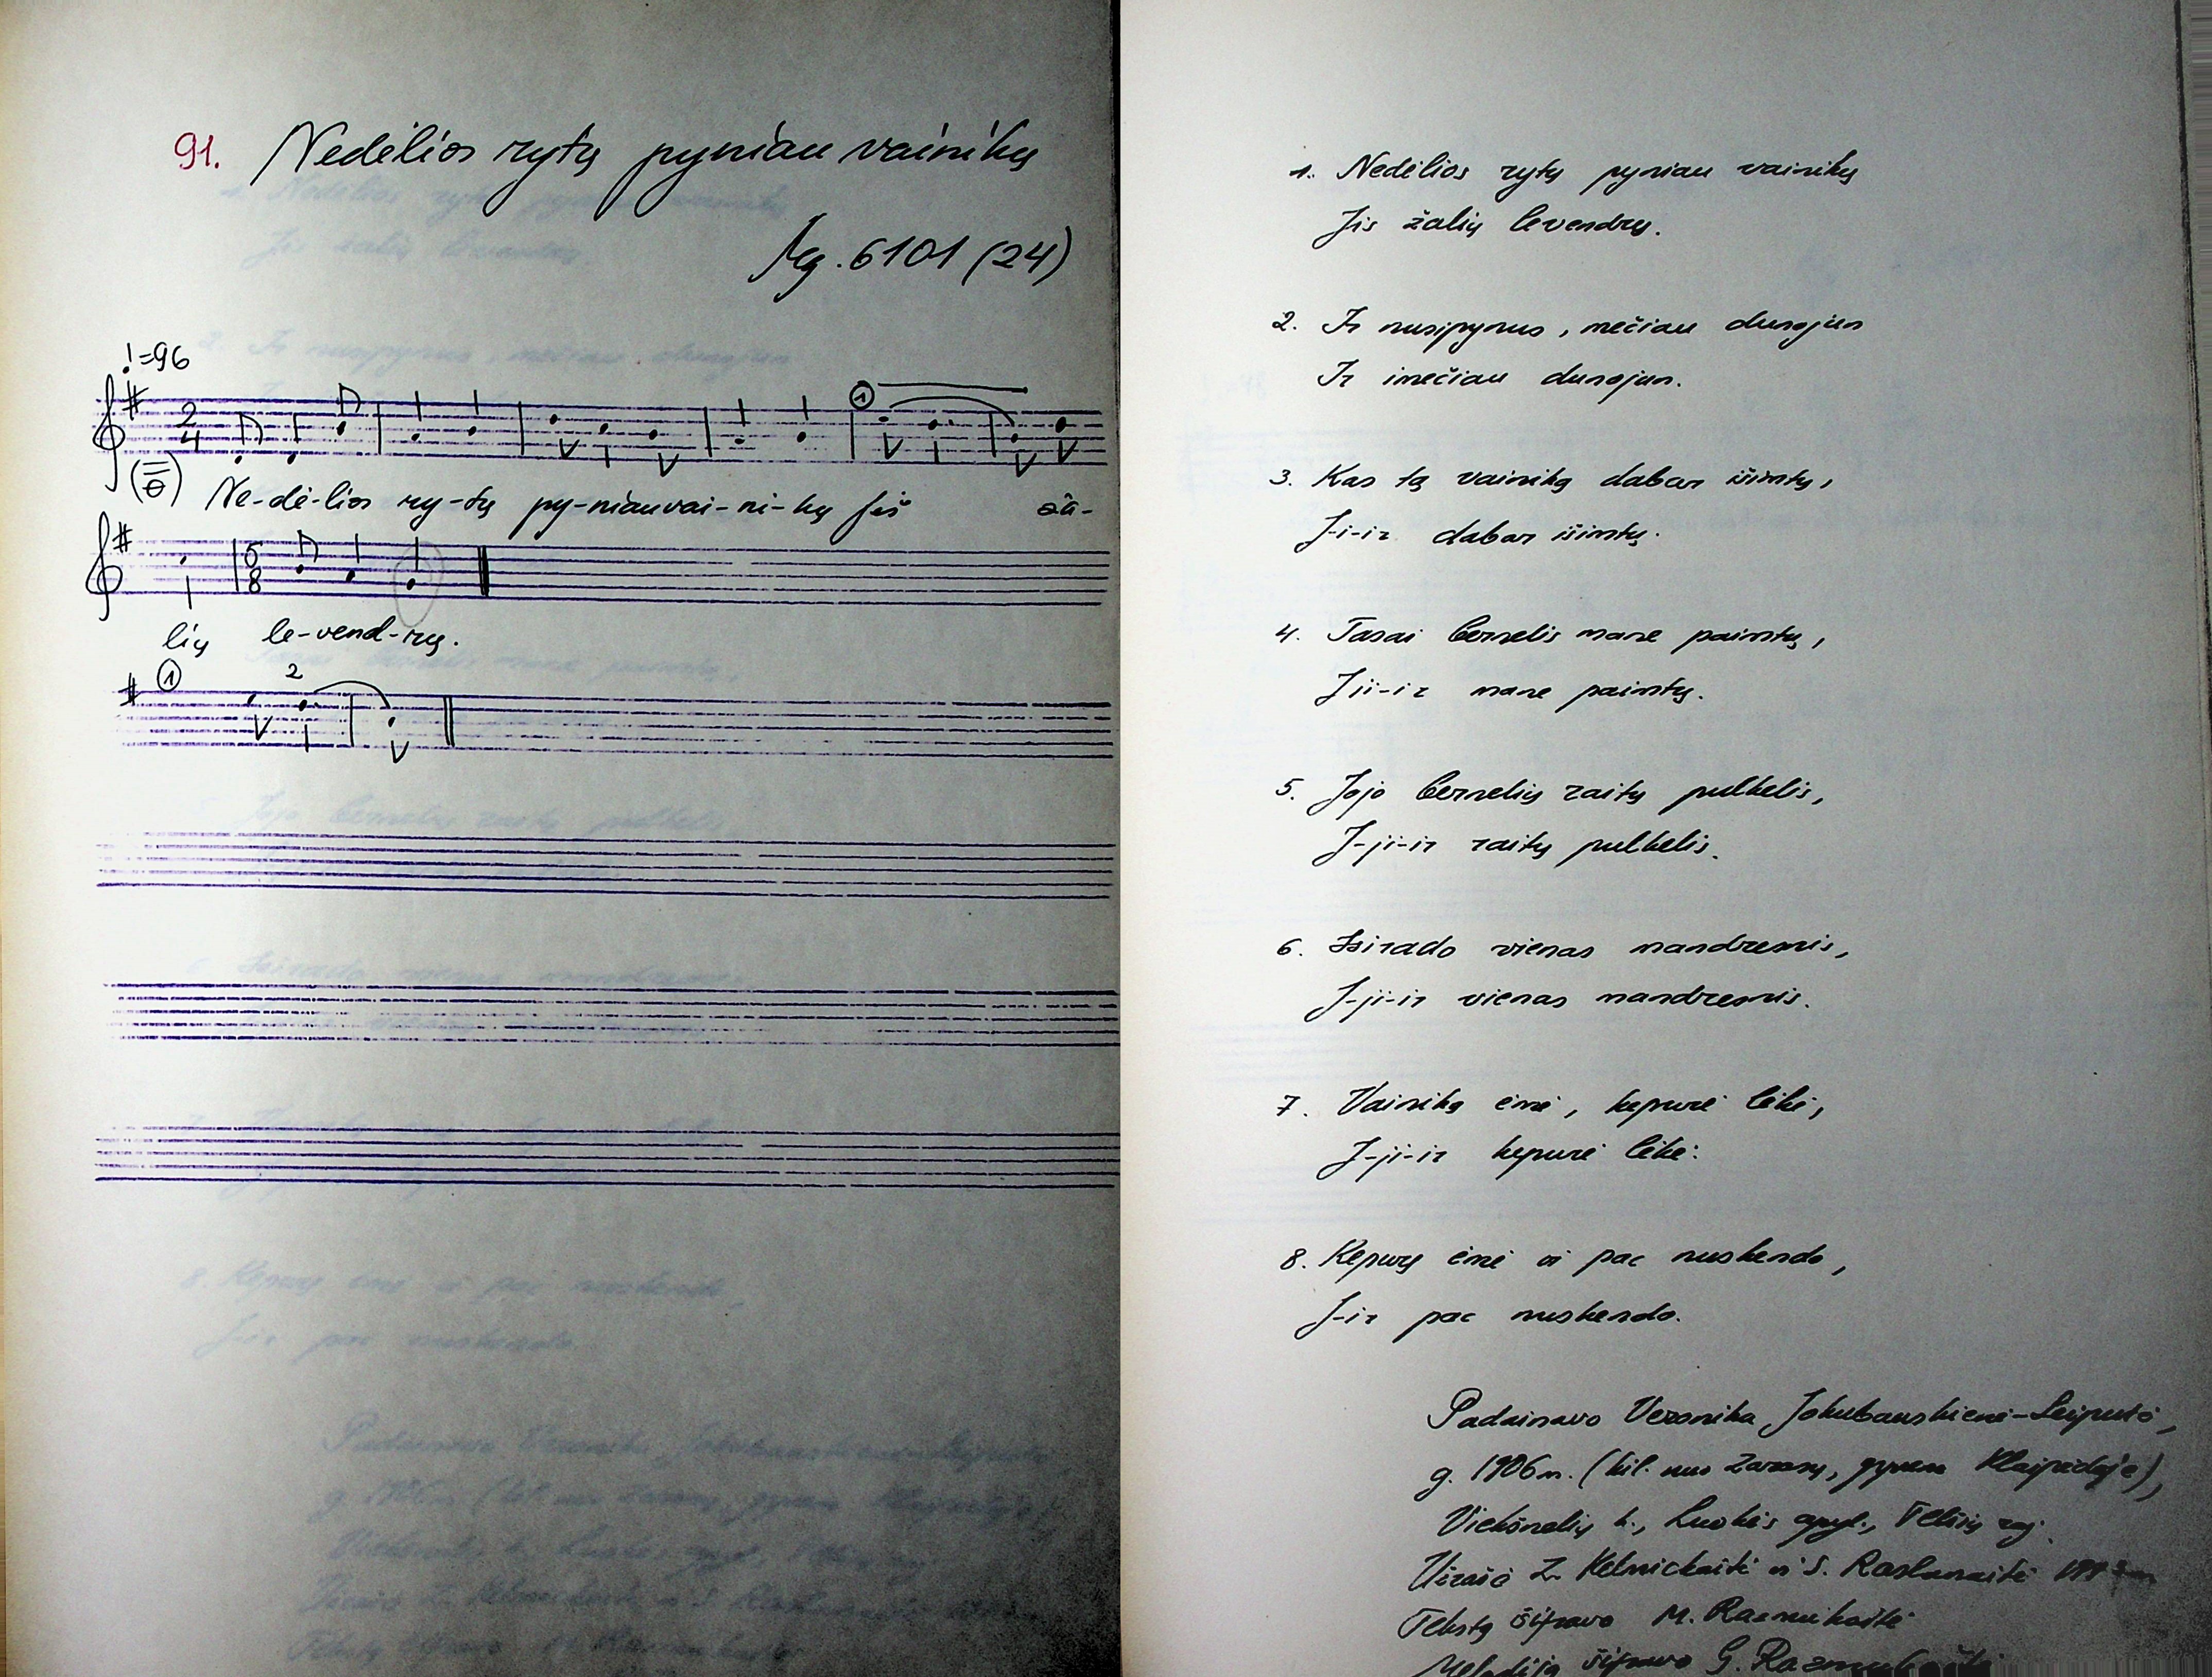 91. Nedėlios rytų pyniau vainikų
Mg. 6101 (24)
=96
2
4
1
Ne-dė-lios ry-tų py-niau vai-ni-kų jiš žā-
5
8
lių le-vend-rų.
1
2
1. Nedėlios rytų pyniau vainikų
Jis žalių levendrų.
2. Ir nusipynus, mečiau dunojun
Ir imečiau dunojun.
3. Kas tą vainiką dabar išimtų,
J-i-ir dabar išimtų.
4. Tasai bernelis mane paimtų,
Jii-ir mane paimtų.
5. Jojo bernelių raitų pulkelis,
J-ji-ir raitų pulkelis.
6. Isirado vienas mandresnis,
J-ji-ir vienas mandresnis.
7. Vainiką ėmė, kepurė lėkė,
J-ji-ir kepurė lėkė.
8. Kepurų ėmė ir pac nuskendo,
J-ir pac nuskendo.
Padainavo Veronika Jokubauskienė-Leiputė,
g. 1906 m. (kil. nuo Zarasų, gyven. Klaipėdoje),
Viekšnelių k., Luokės apyl., Telšių raj.
Užrašė Z. Kelmickaitė ir S. Raslanaitė
Tekstą šifravo M. Razmukaitė
Melodiją šifravo G.